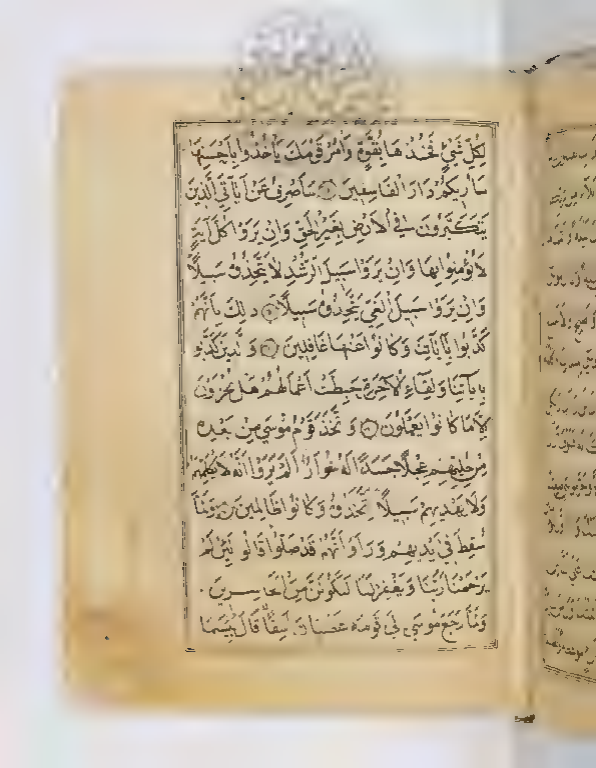 لِكُلِّ شَيْءٍ فَخُذْهَا بِقُوَّةٍ وَأْمُرْ قَوْمَكَ يَأْخُذُوا بِأَحْسَنِهَا
سَأُرِيكُمْ دَارَ الْفَاسِقِينَ سَأَصْرِفُ عَنْ آيَاتِيَ الَّذِينَ
يَتَكَبَّرُونَ فِي الْأَرْضِ بِغَيْرِ الْحَقِّ وَإِنْ يَرَوْا كُلَّ آيَةٍ
لَا يُؤْمِنُوا بِهَا وَإِنْ يَرَوْا سَبِيلَ الرُّشْدِ لَا يَتَّخِذُوهُ سَبِيلًا
وَإِنْ يَرَوْا سَبِيلَ الْغَيِّ يَتَّخِذُوهُ سَبِيلًا ذَلِكَ بِأَنَّهُمْ
كَذَّبُوا بِآيَاتِنَا وَكَانُوا عَنْهَا غَافِلِينَ وَالَّذِينَ كَذَّبُوا
بِآيَاتِنَا وَلِقَاءِ الْآخِرَةِ حَبِطَتْ أَعْمَالُهُمْ هَلْ يُجْزَوْنَ
إِلَّا مَا كَانُوا يَعْمَلُونَ وَاتَّخَذَ قَوْمُ مُوسَى مِنْ بَعْدِهِ
مِنْ حُلِيِّهِمْ عِجْلًا جَسَدًا لَهُ خُوَارٌ أَلَمْ يَرَوْا أَنَّهُ لَا يُكَلِّمُهُمْ
وَلَا يَهْدِيهِمْ سَبِيلًا اتَّخَذُوهُ وَكَانُوا ظَالِمِينَ وَلَمَّا
سُقِطَ فِي أَيْدِيهِمْ وَرَأَوْا أَنَّهُمْ قَدْ ضَلُّوا قَالُوا لَئِنْ لَمْ
يَرْحَمْنَا رَبُّنَا وَيَغْفِرْ لَنَا لَنَكُونَنَّ مِنَ الْخَاسِرِينَ
وَلَمَّا رَجَعَ مُوسَى إِلَى قَوْمِهِ غَضْبَانَ أَسِفًا قَالَ بِئْسَمَا